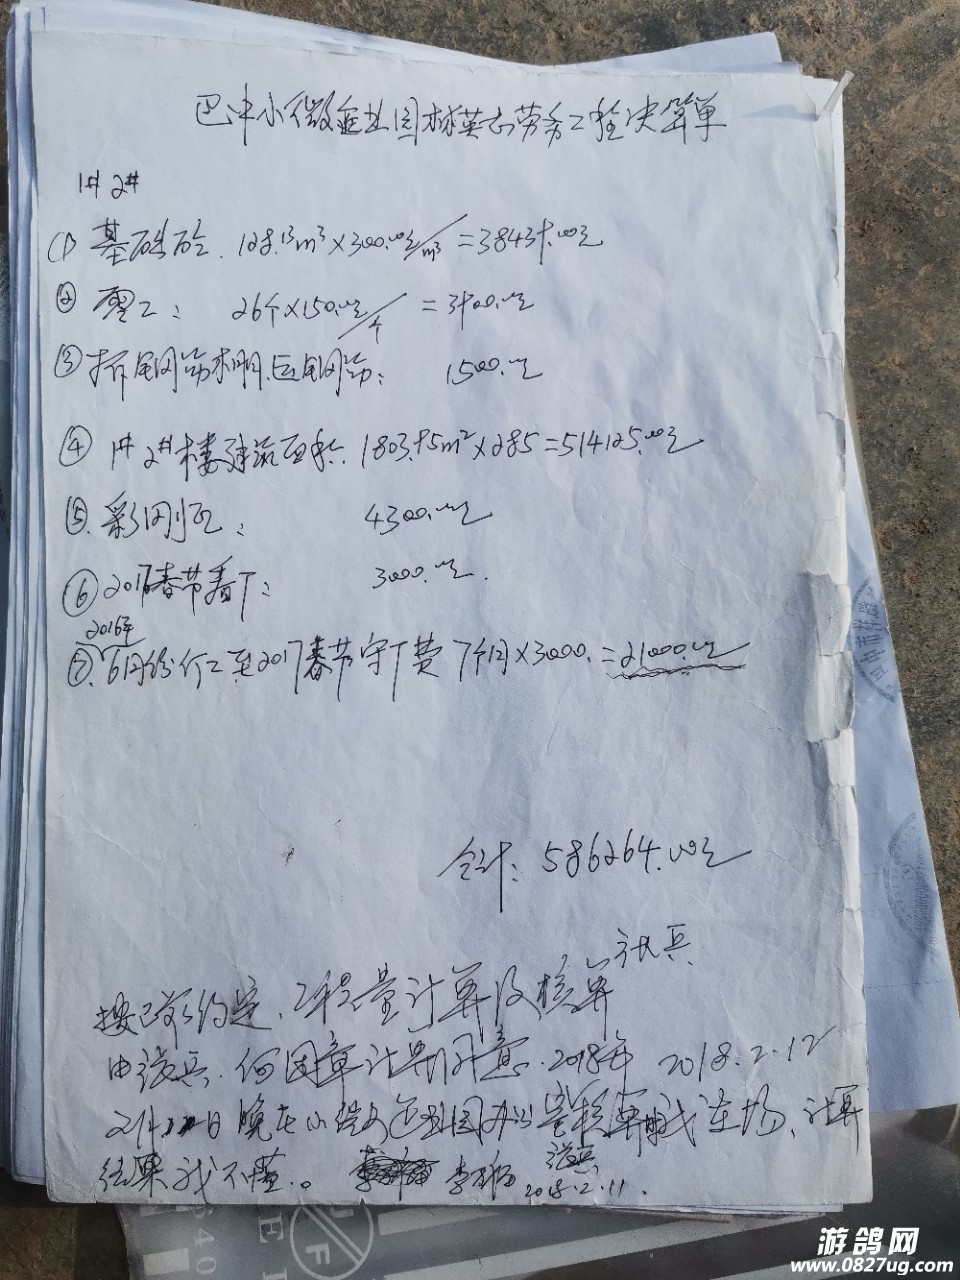 巴中小微企业园林英志劳务工程决算单
1# 2#
① 基础砼. 128.13m³×300.00元/m³=38439.00元
② 零工: 26个×150.00元/个 =3900.00元
③ 拆钢筋棚.运钢筋: 1500.00元
④ 1# 2#楼建筑面积. 1803.95m²×285=514125.00元
⑤. 彩刚瓦: 4300.00元
⑥ 2017春节看厂: 3000.00元.
2016年
⑦. 6月份介工至2017春节守厂费 7个月×3000.=21000.00元
合计: 586264.00元
按 约定、工程量计算及核算
由 兵. 何国章计算同意. 2018年 2018.2.12
2月 日晚在小微企业园办公室核算 我在场、计算
结果我不懂。 李 2018.2.11.
游鸽网
www.0827ug.com